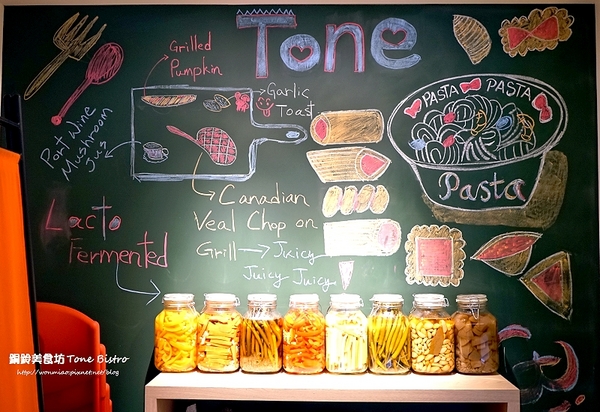 Tone
Grilled
Pumpkin
Garlic
Toast
PASTA PASTA
Pasta
Port Wine
Mushroom
Jus
Canadian
Veal Chop on
Grill → Juicy
Juicy Juicy
Lacto
Fermented
銅鈴美食坊 Tone Bistro
http://wonmiao.pixnet.net/blog